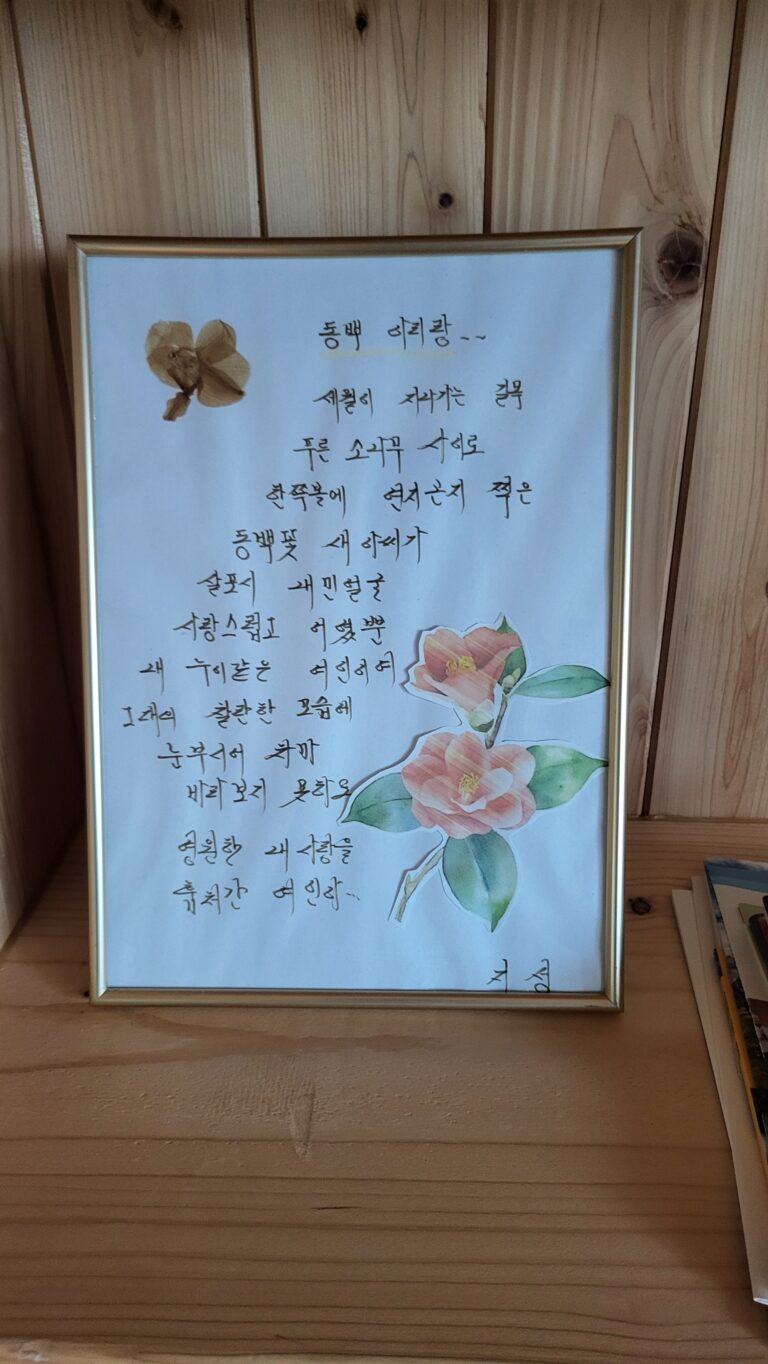 동백 아리랑~~
세월이 지나가는 길목
푸른 소나무 사이로
한쪽볼에 연지곤지 찍은
동백꽃 새 아씨가
살포시 내민얼굴
사랑스럽고 어여쁜
내 누이같은 여인이여
그대의 찬란한 모습에
눈부시어 차마
바라보지 못하오
영원한 내 사랑을
훔쳐간 여인아...
지 성